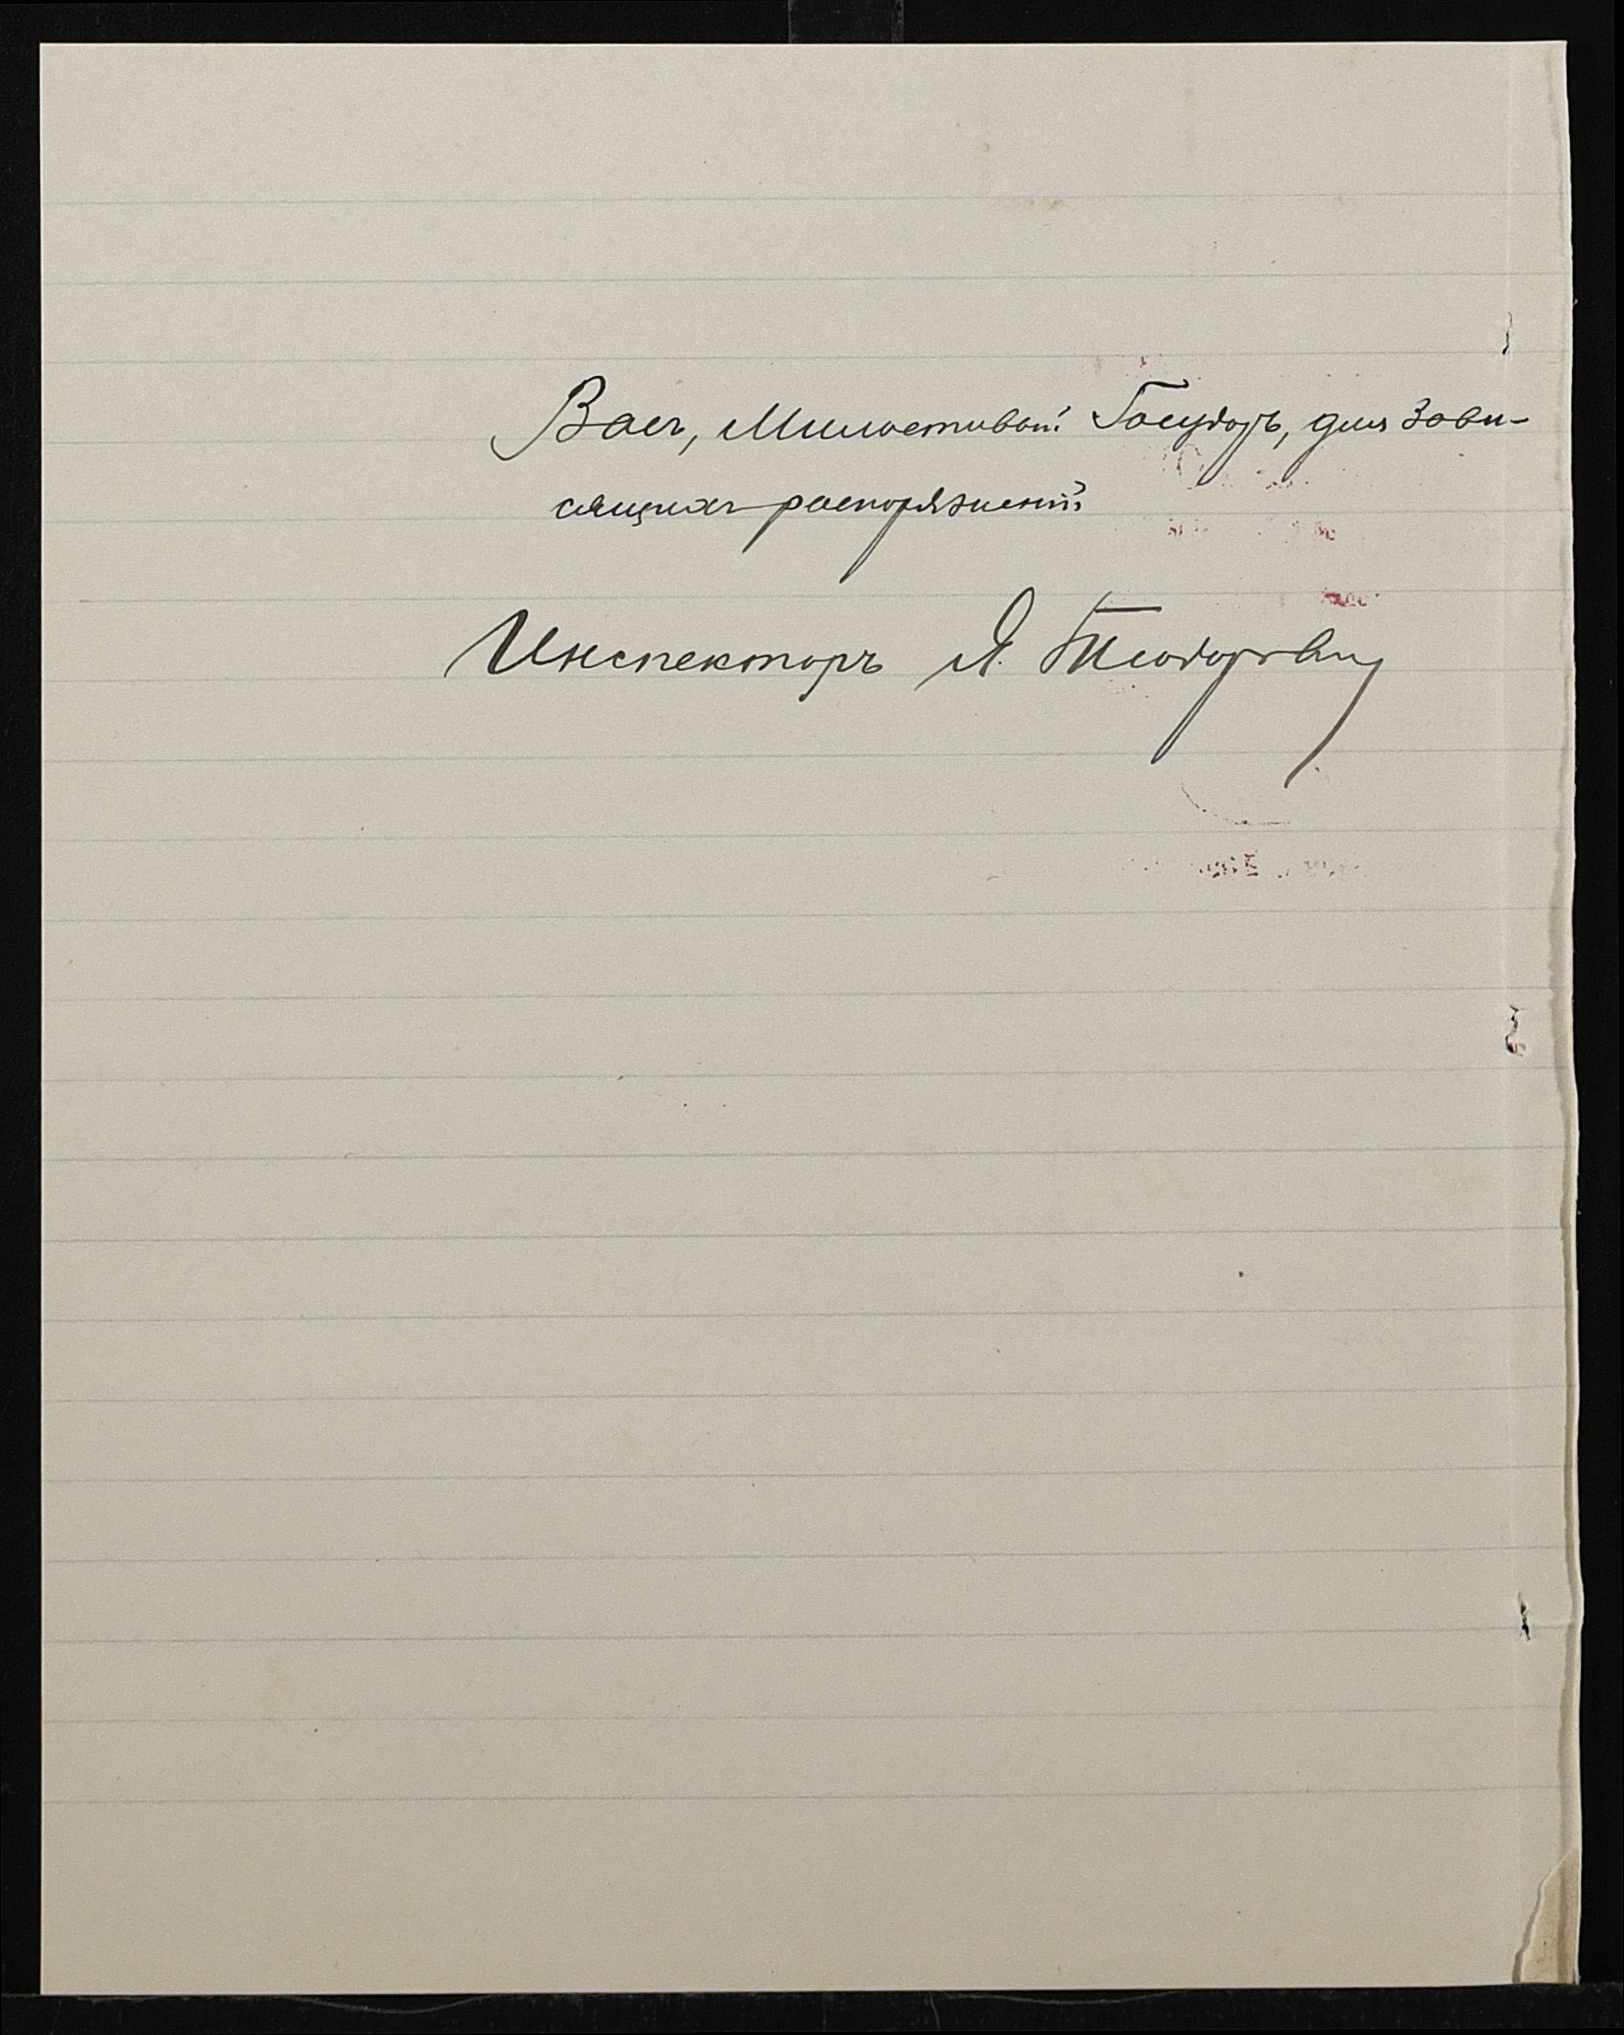 Васъ, Милостивый Государь, для зави-
сящихъ распоряженій
Инспекторъ Я. Теодорович